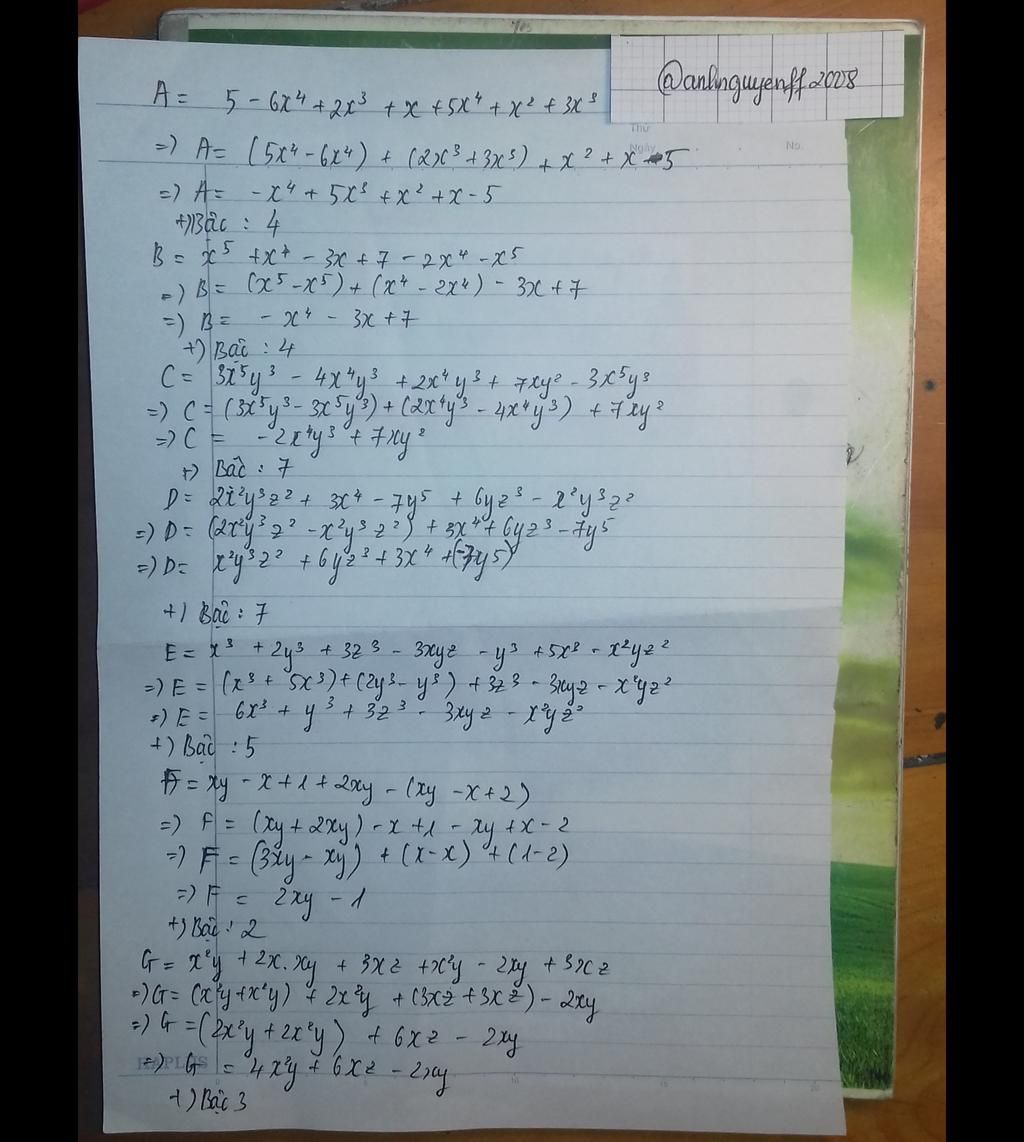 Yes
@anhnguyenff2008
A = 5 - 6x⁴ + 2x³ + x + 5x⁴ + x² + 3x³
Thứ
Ngày No.
=) A = (5x⁴ - 6x⁴) + (2x³ + 3x³) + x² + x - 5
=) A = - x⁴ + 5x³ + x² + x - 5
+) Bậc : 4
B = x⁵ + x⁴ - 3x + 7 - 2x⁴ - x⁵
=) B = (x⁵ - x⁵) + (x⁴ - 2x⁴) - 3x + 7
=) B = - x⁴ - 3x + 7
+) Bậc : 4
C = 3x⁵y³ - 4x⁴y³ + 2x⁴y³ + 7xy² - 3x⁵y³
=) C = (3x⁵y³ - 3x⁵y³) + (2x⁴y³ - 4x⁴y³) + 7xy²
=) C = - 2x⁴y³ + 7xy²
+) Bậc : 7
D = 2x²y³z² + 3x⁴ - 7y⁵ + 6yz³ - x²y³z²
=) D = (2x²y³z² - x²y³z²) + 3x⁴ + 6yz³ - 7y⁵
=) D = x²y³z² + 6yz³ + 3x⁴ + (-7y5)
+) Bậc : 7
E = x³ + 2y³ + 3z³ - 3xyz - y³ + 5x³ - x²yz²
=) E = (x³ + 5x³) + (2y³ - y³) + 3z³ - 3xyz - x²yz²
=) E = 6x³ + y³ + 3z³ - 3xyz - x²yz²
+) Bậc : 5
F = xy - x + 1 + 2xy - (xy - x + 2)
=) F = (xy + 2xy) - x + 1 - xy + x - 2
=) F = (3xy - xy) + (x - x) + (1 - 2)
=) F = 2xy - 1
+) Bậc : 2
G = x²y + 2x.xy + 3xz + x²y - 2xy + 3xz
=) G = (x²y + x²y) + 2x²y + (3xz + 3xz) - 2xy
=) G = (2x²y + 2x²y) + 6xz - 2xy
=) G = 4x²y + 6xz - 2xy
HAPLUS
+) Bậc 3